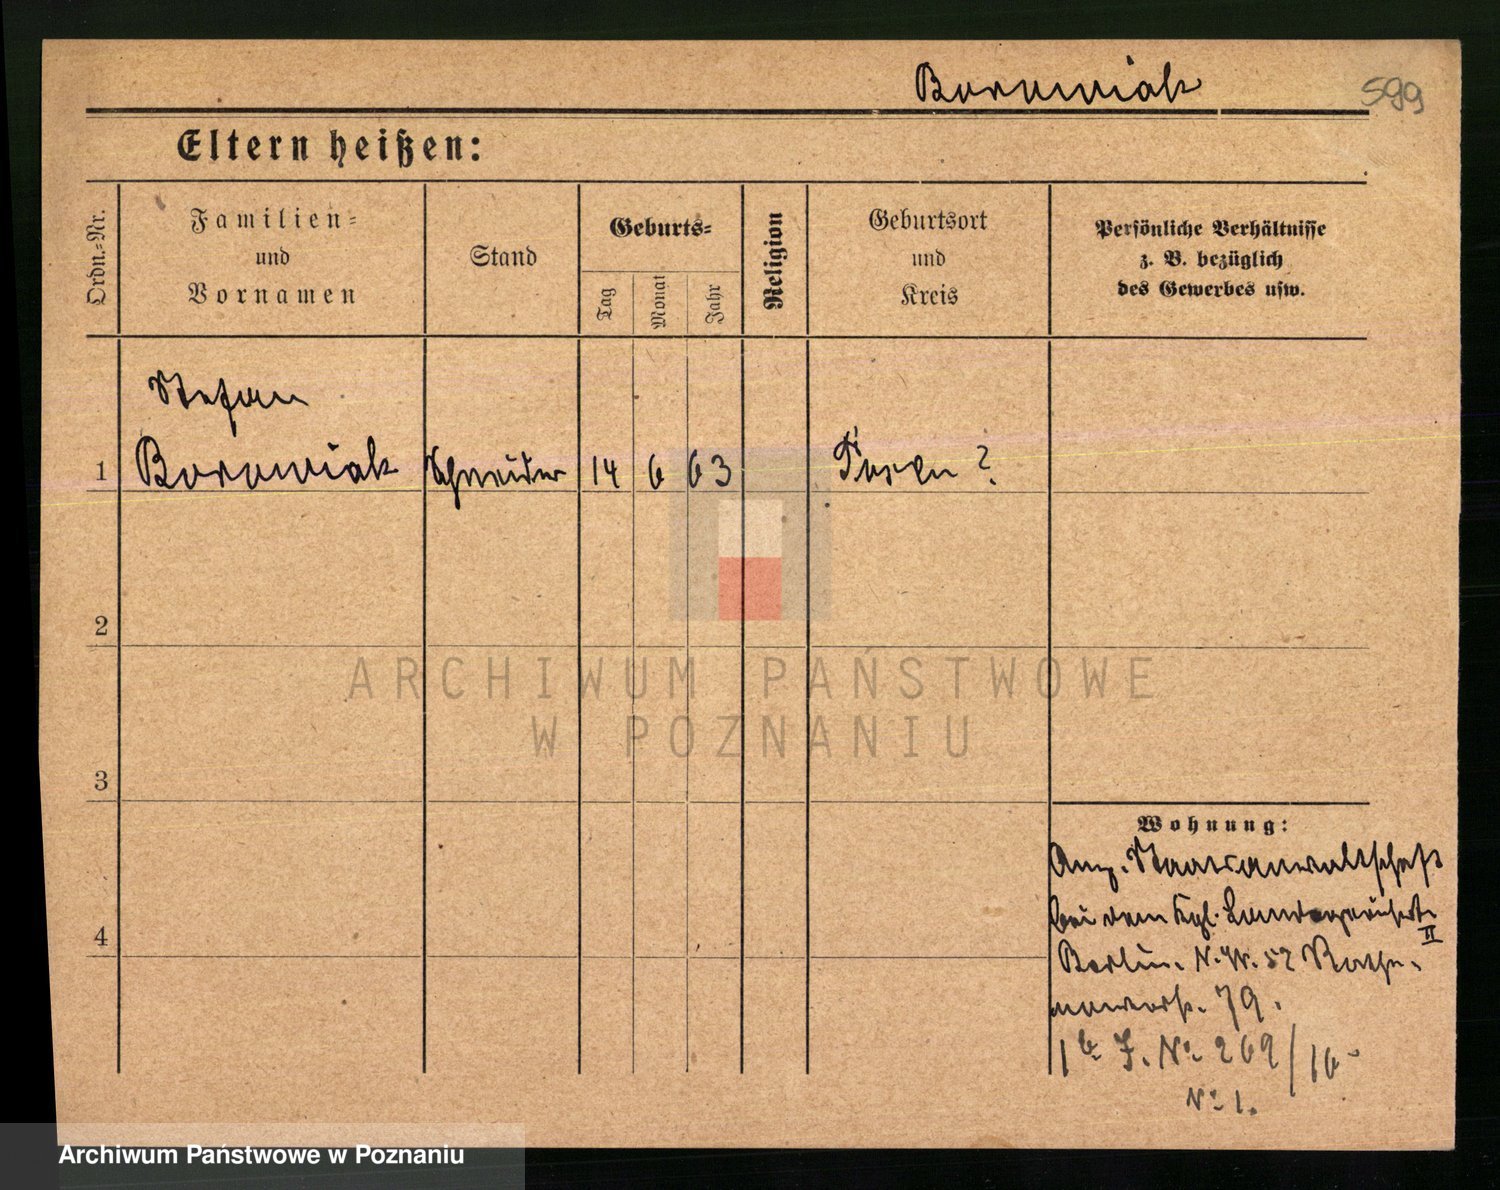 Borowiak
599
Eltern heißen:
Ordn.-Nr.
Familien-
und
Vornamen
Stand
Geburts-
Tag
Monat
Jahr
Religion
Geburtsort
und
Kreis
Persönliche Verhältnisse
z. B. bezüglich
des Gewerbes usw.
Stefan
1 Borowiak Schneider 14 6 63 Posen ?
2
3
4
Wohnung:
Anz. Staatsanwaltschaft
bei dem Kgl. Landgericht
II
Berlin. N.W. 52 Rathe-
nowerstr. 79.
1 b J. No 269/16
No 1.
ARCHIWUM PAŃSTWOWE
W POZNANIU
Archiwum Państwowe w Poznaniu